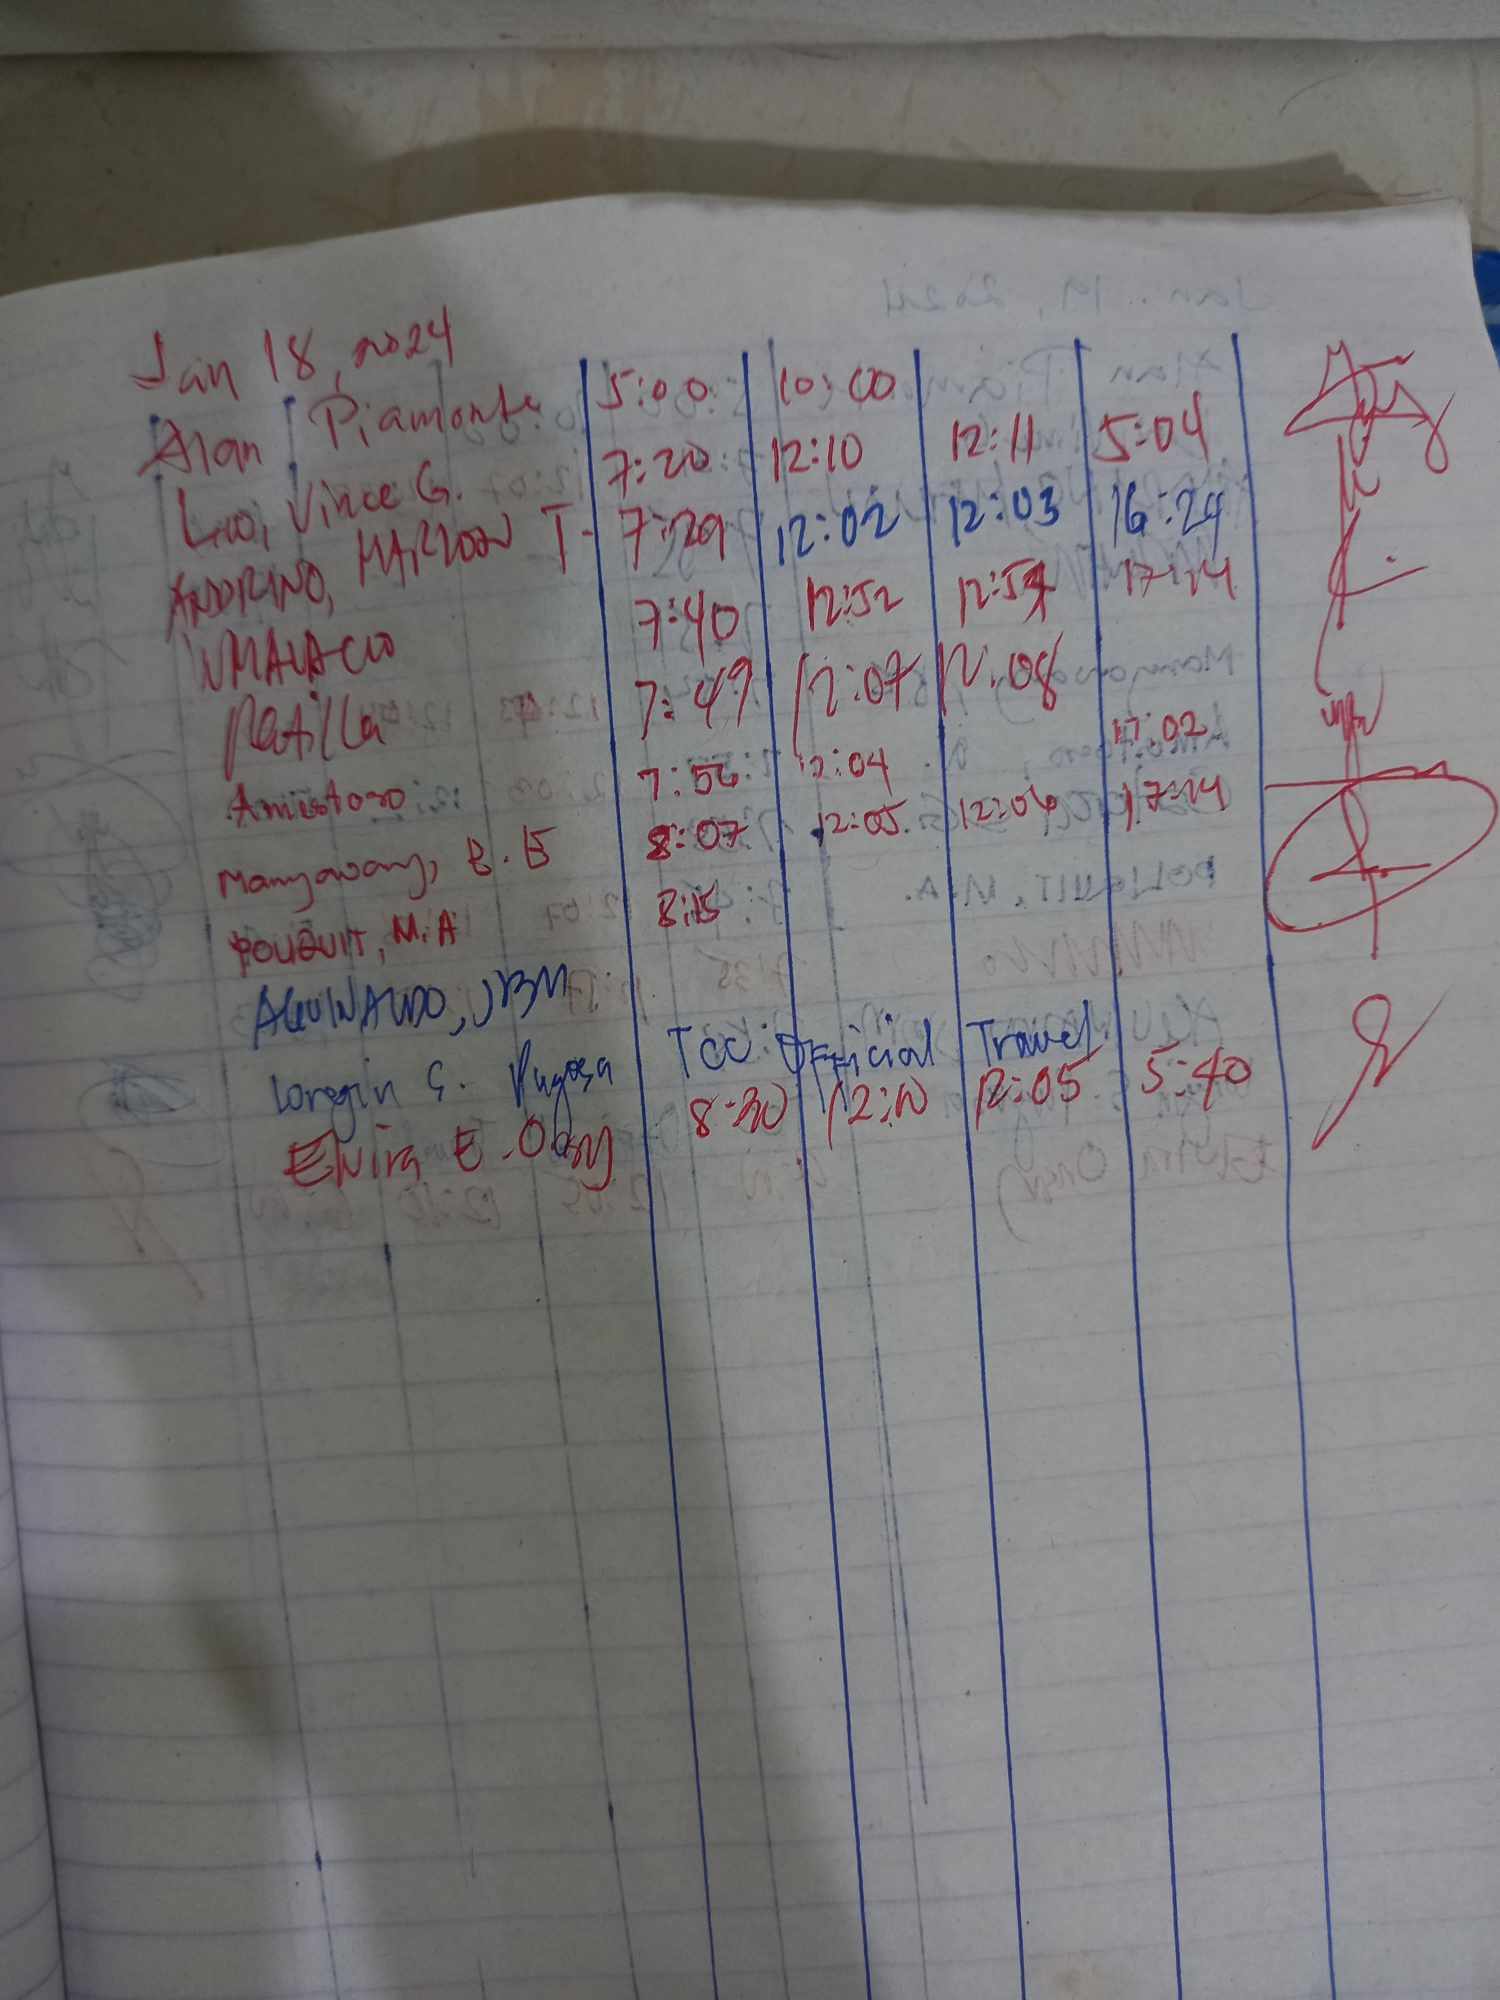 Jan 18, 2024
Alan Piamonte 5:00 10:00
Vince G. 7:20 12:10 12:11 5:04
ANDRINO, MARLOON T. 7:29 12:02 12:03 16:24
7:40 12:52 12:54 17:14
Patilla 7:49 12:07 12:08
Amistoso 7:56 12:04 17:02
Mangavang, B. E 8:07 12:05 12:06 17:14
POLIQUIT, M.A 8:15
AGUINALDO, JBM
Loregin G. Pagosa TCC: Official Travel
Elvira E. Oray 8:30 12:10 12:05 5:40